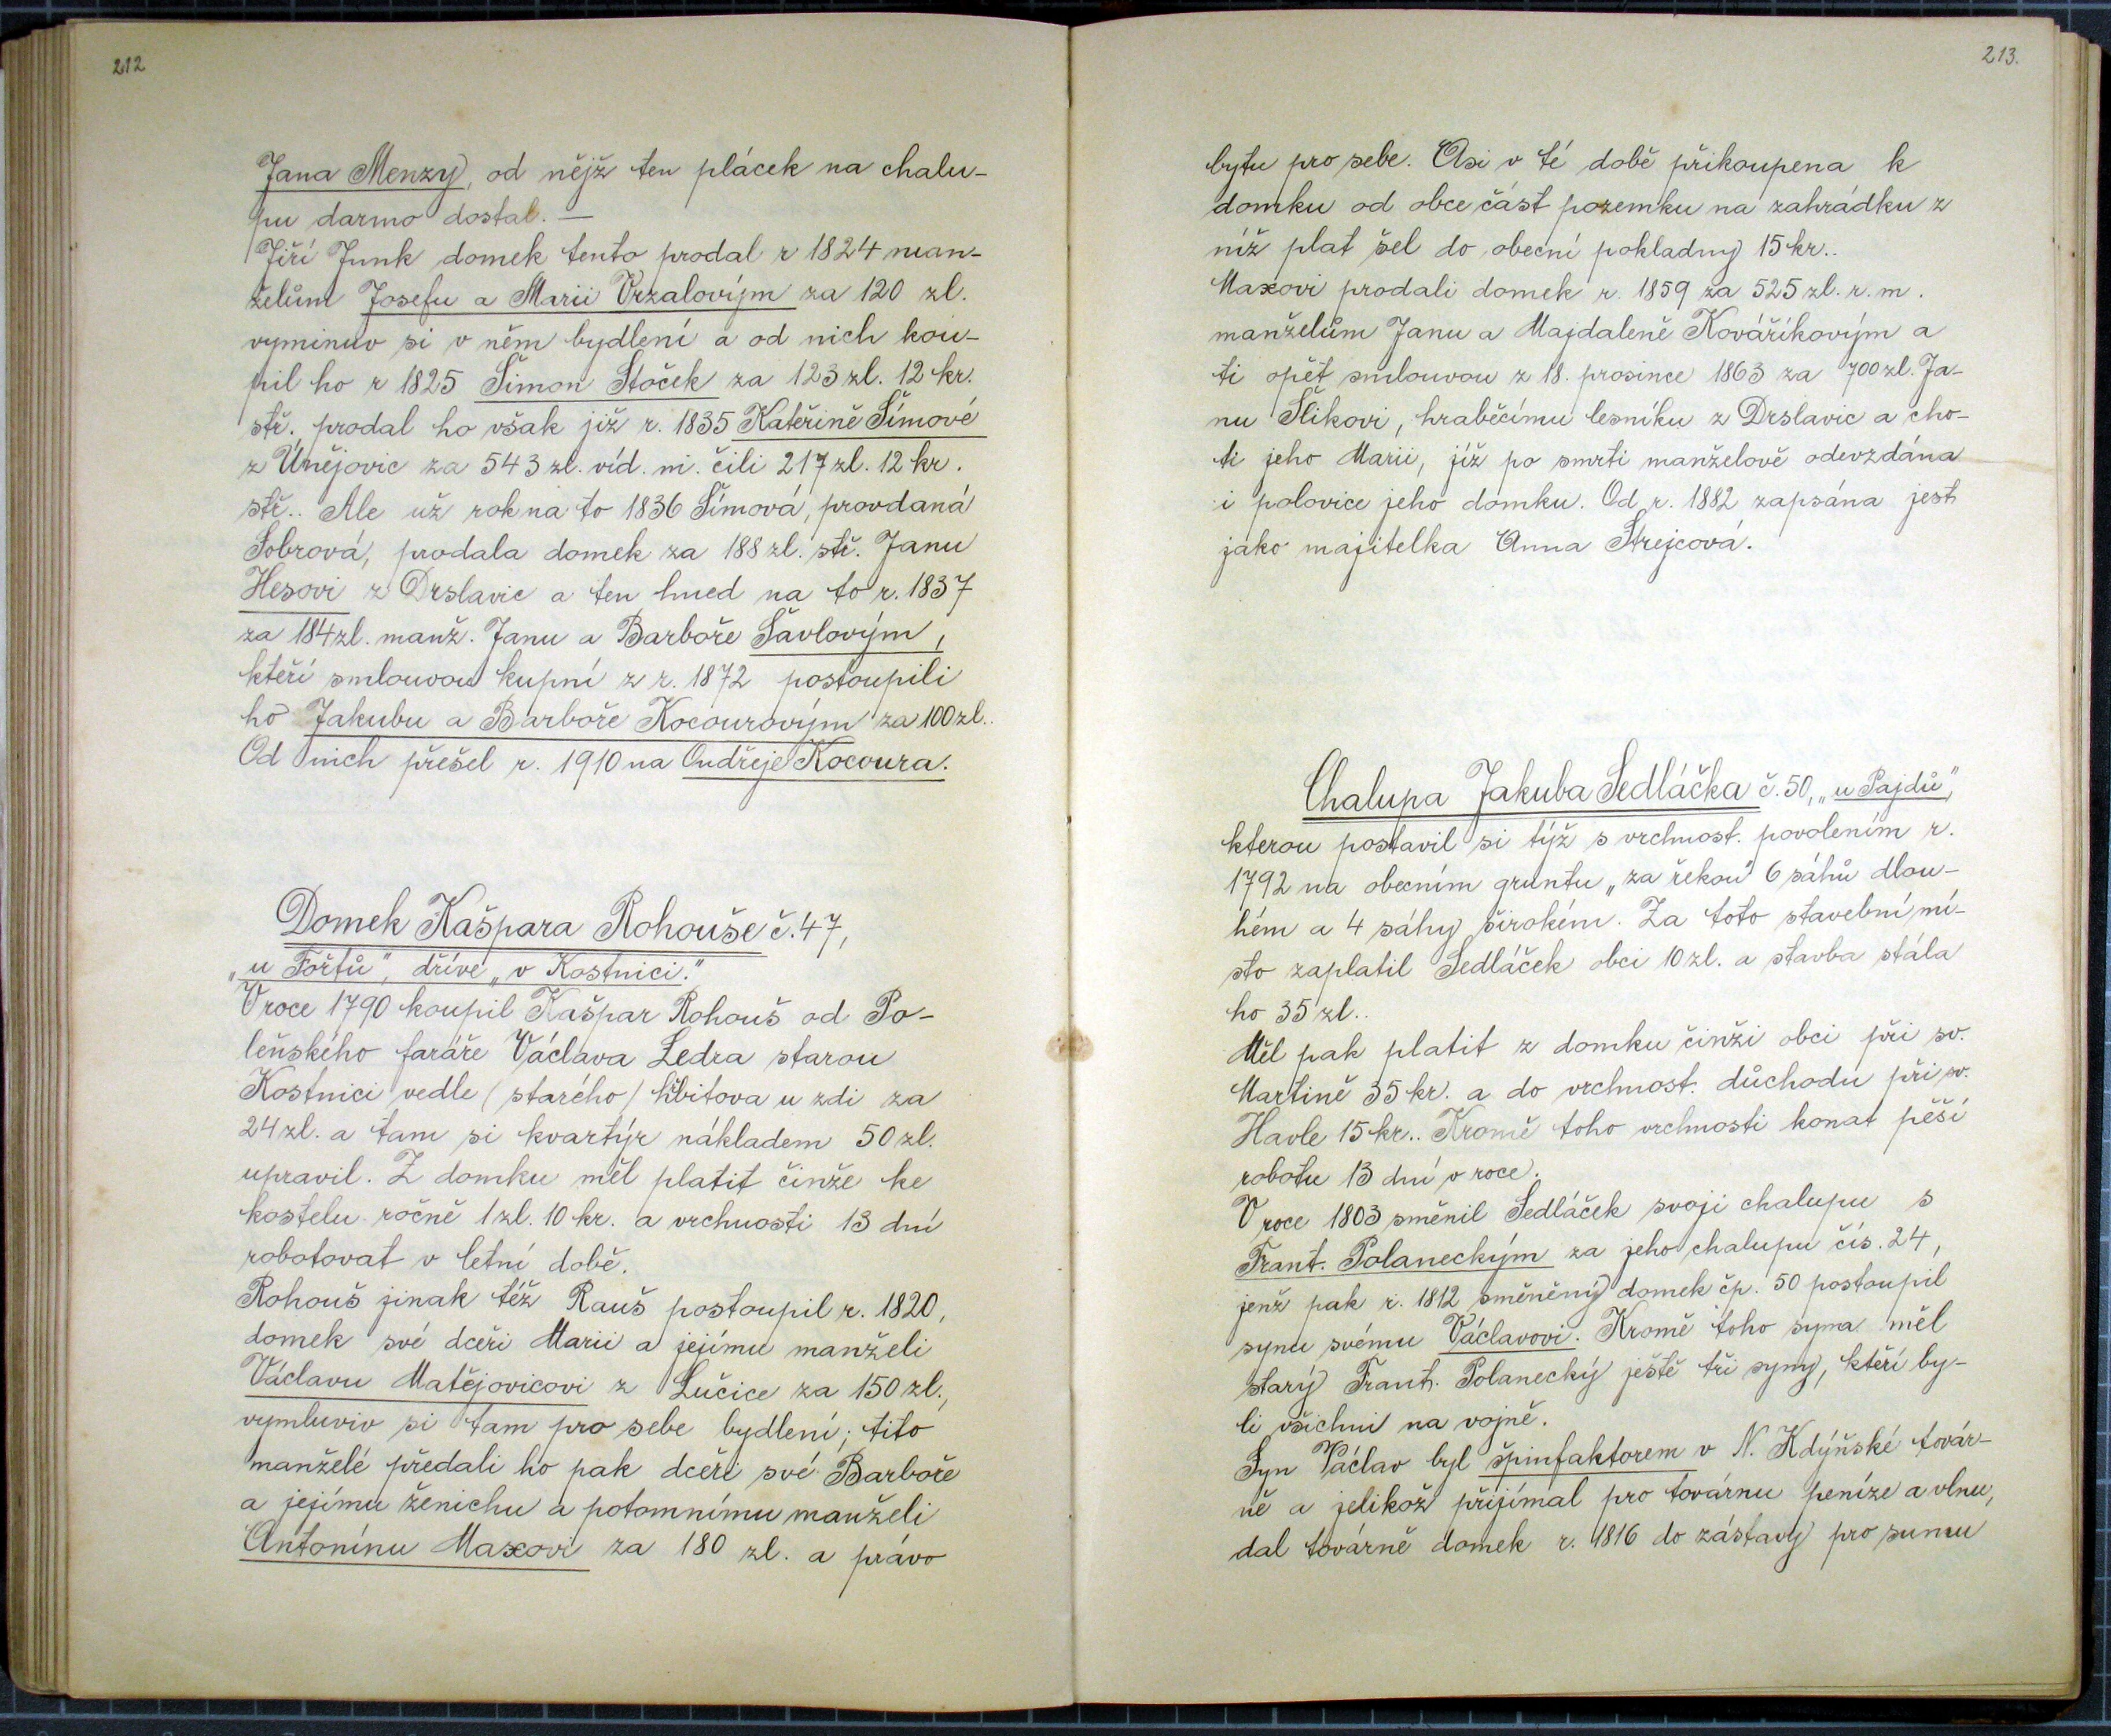 212
Jana Menzy, od nějž ten plácek na chalu-
pu darmo dostal. —
Jiří Junk domek tento prodal r 1824 man-
želům Josefu a Marii Vrzalovým za 120 zl.
vyminuv si v něm bydlení a od nich kou-
pil ho r 1825 Šimon Stoček za 123 zl. 12 kr.
stř., prodal ho však již r. 1835 Kateřině Šímové
z Únějovic za 543 zl. víd. m. čili 217 zl. 12 kr.
stř.. Ale už rok na to 1836 Šímová, provdaná
Sobrová, prodala domek za 188 zl. stř. Janu
Hesovi z Drslavic a ten hned na to r. 1837
za 184 zl. manž. Janu a Barboře Šavlovým,
kteří smlouvou kupní z r. 1872 postoupili
ho Jakubu a Barboře Kocourovým za 100 zl..
Od nich přešel r. 1910 na Ondřeje Kocoura.
Domek Kašpara Rohouše č. 47,
„u Fořtů", dříve „v Kostnici."
V roce 1790 koupil Kašpar Rohouš od Po-
leňského faráře Václava Ledra starou
Kostnici vedle (starého) hřbitova u zdi za
24 zl. a tam si kvartýr nákladem 50 zl.
upravil. Z domku měl platit činže ke
kostelu ročně 1 zl. 10 kr. a vrchnosti 13 dní
robotovat v letní době.
Rohouš jinak též Rauš postoupil r. 1820,
domek své dceři Marii a jejímu manželi
Václavu Matějovicovi z Lučice za 150 zl.,
vymluviv si tam pro sebe bydlení; tito
manželé předali ho pak dceři své Barboře
a jejímu ženichu a potomnímu manželi
Antonínu Maxovi za 180 zl. a právo
213.
bytu pro sebe. Asi v té době přikoupena k
domku od obce část pozemku na zahrádku z
níž plat šel do obecní pokladny 15 kr..
Maxovi prodali domek r. 1859 za 525 zl. r. m.
manželům Janu a Majdaleně Kovaříkovým a
ti opět smlouvou z 18. prosince 1863 za 700 zl. Ja-
nu Šlikovi, hraběcímu lesníku z Drslavic a cho-
ti jeho Marii, jíž po smrti manželově odevzdána
i polovice jeho domku. Od r. 1882 zapsána jest
jako majitelka Anna Strejcová.
Chalupa Jakuba Sedláčka č. 50, „u Pajdů",
kterou postavil si týž s vrchnost. povolením r.
1792 na obecním gruntu „za řekou" 6 sáhů dlou-
hém a 4 sáhy širokém. Za toto stavební mí-
sto zaplatil Sedláček obci 10 zl. a stavba stála
ho 35 zl..
Měl pak platit z domku činži obci při sv.
Martině 35 kr. a do vrchnost. důchodu při sv.
Havle 15 kr.. Kromě toho vrchnosti konat pěší
robotu 13 dní v roce.
V roce 1803 směnil Sedláček svoji chalupu s
Frant. Polaneckým za jeho chalupu čís. 24,
jenž pak r. 1812 směněný domek čp. 50 postoupil
synu svému Václavovi. Kromě toho syna měl
starý Frant. Polanecký ještě tři syny, kteří by-
li všichni na vojně.
Syn Václav byl špinfaktorem v N. Kdýňské továr-
ně a jelikož přijímal pro továrnu peníze a vlnu,
dal továrně domek r. 1816 do zástavy pro sumu